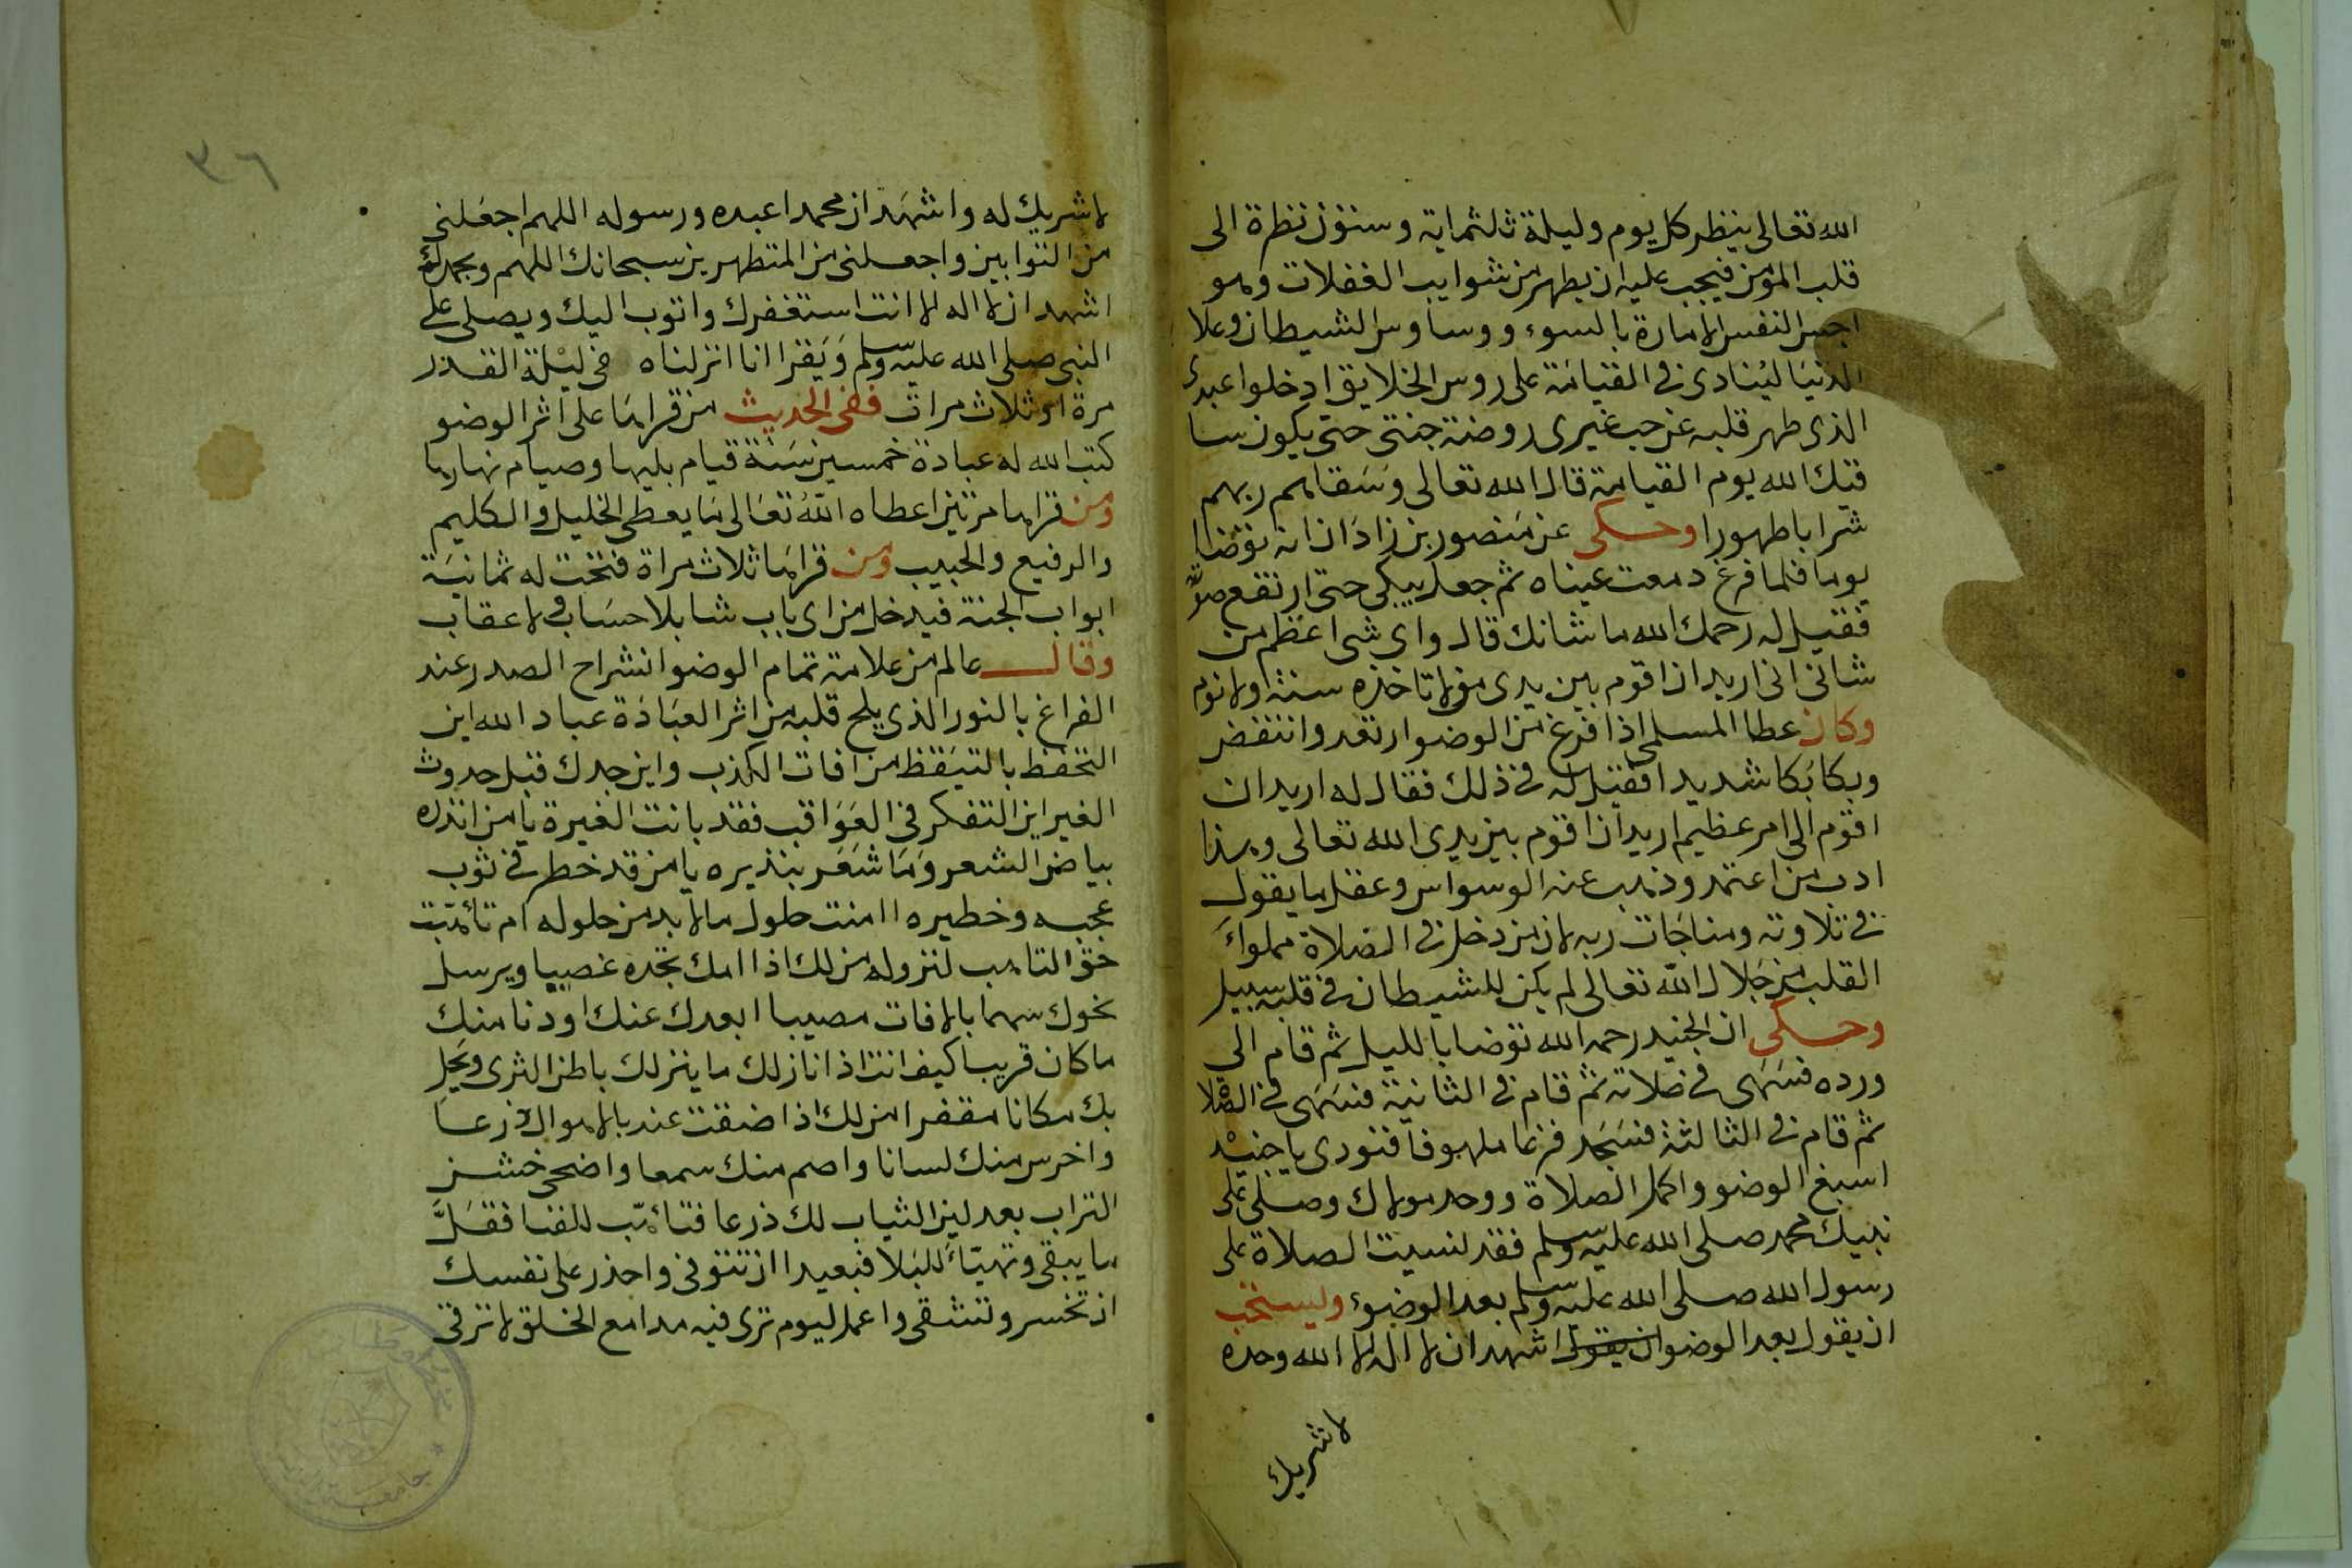 الله تعالى ينظر كل يوم وليلة ثلثماية وستون نظرة الى
قلب المومن فيجب عليه ان يطهر من شوايب الغفلات وهو
اجس النفس الامارة بالسوء ووساوس الشيطان وعلا
الدنيا لينادى فى القيامة على روس الخلايق ادخلوا عبدى
الذى طهر قلبه عن حب غيرى روضة جنتى حتى يكون سا
قيك الله يوم القيامة قال الله تعالى وسقاهم ربهم
شرابا طهورا وحكى عن منصور بن زاذان انه توضا
يوما فلما فرغ دمعت عيناه ثم جعل يبكى حتى ارتفع صوته
فقيل له رحمك الله ما شانك قال واى شى اعظم من
شانى انى اريد ان اقوم بين يدى من لا تاخذه سنة ولا نوم
وكان عطا المسلمى اذا فرغ من الوضو ارتعد وانتفض
وبكا بكا شديدا فقيل له فى ذلك فقال له اريد ان
اقوم الى امر عظيم اريد ان اقوم بين يدى الله تعالى وهذا
ادب من اعتمد وذهب عنه الوسواس وعقل ما يقول
فى تلاوته ومناجات ربه لان من دخل فى الصلاة مملواء
القلب من جلال الله تعالى لم يكن للشيطان فى قلبه سبيل
وحكى ان الجنيد رحمه الله توضا بالليل ثم قام الى
ورده فسهى فى صلاته ثم قام فى الثانية فسهى فى الصلا
ثم قام فى الثالثة فسجد فزعا ملهوفا فنودى يا جنيد
اسبغ الوضو واكمل الصلاة ووحد مولاك وصلى على
نبيك محمد صلى الله عليه وسلم فقد نسيت الصلاة على
رسول الله صلى الله عليه وسلم بعد الوضوء ويستحب
ان يقول بعد الوضو ان يقول اشهد ان لا اله الا الله وحده
لا شريك
٣٦
لا شريك له واشهد ان محمدا عبده ورسوله اللهم اجعلنى
من التوابين واجعلنى من المتطهرين سبحانك اللهم وبحمدك
اشهد ان لا اله الا انت استغفرك واتوب اليك ويصلى على
النبى صلى الله عليه وسلم ويقرا انا انزلناه فى ليلة القدر
مرة او ثلاث مرات ففى الحديث من قراها على اثر الوضو
كتب الله له عبادة خمسين سنة قيام بليها وصيام نهارها
ومن قراها مرتين اعطاه الله تعالى ما يعطى الخليل والكليم
والرفيع والحبيب ومن قراها ثلاث مراة فتحت له ثمانية
ابواب الجنة فيدخل من اى باب شا بلا حساب ولا عقاب
وقال عالم من علامة تمام الوضو انشراح الصدر عند
الفراغ بالنور الذى يلج قلبه من اثر العبادة عباد الله اين
التحفظ بالتيقظ من افات الكذب واين جدك قبل حدوث
الغير اين التفكر فى العواقب فقد بانت الغيرة يا من انذره
بياض الشعر وما شعر بنذيره يا من قد خطر فى ثوب
عجبه وخطيره اامنت حلول ما لا بد من حلوله ام تأهبت
حق التاهب لنزوله من لك اذا امك تجده غصيبا ويرسل
نحوك سهما بالافات مصيبا ابعدك عنك او دنا منك
ما كان قريبا كيف انت اذا نازلك ما ينزلك باطن الثرى ويحل
بك مكانا مقفرا من لك اذا ضقت عند بالاهوال ذرعا
واخرس منك لسانا واصم منك سمعا واضحى خشن
التراب بعد لين الثياب لك ذرعا فتأهب للفنا فقل
ما يبقى وتهيأ للبلا فبعيدا ان تتوفى واحذر على نفسك
ان تخسر وتشقى واعمل ليوم ترى فيه مدامع الخلق لا ترقى